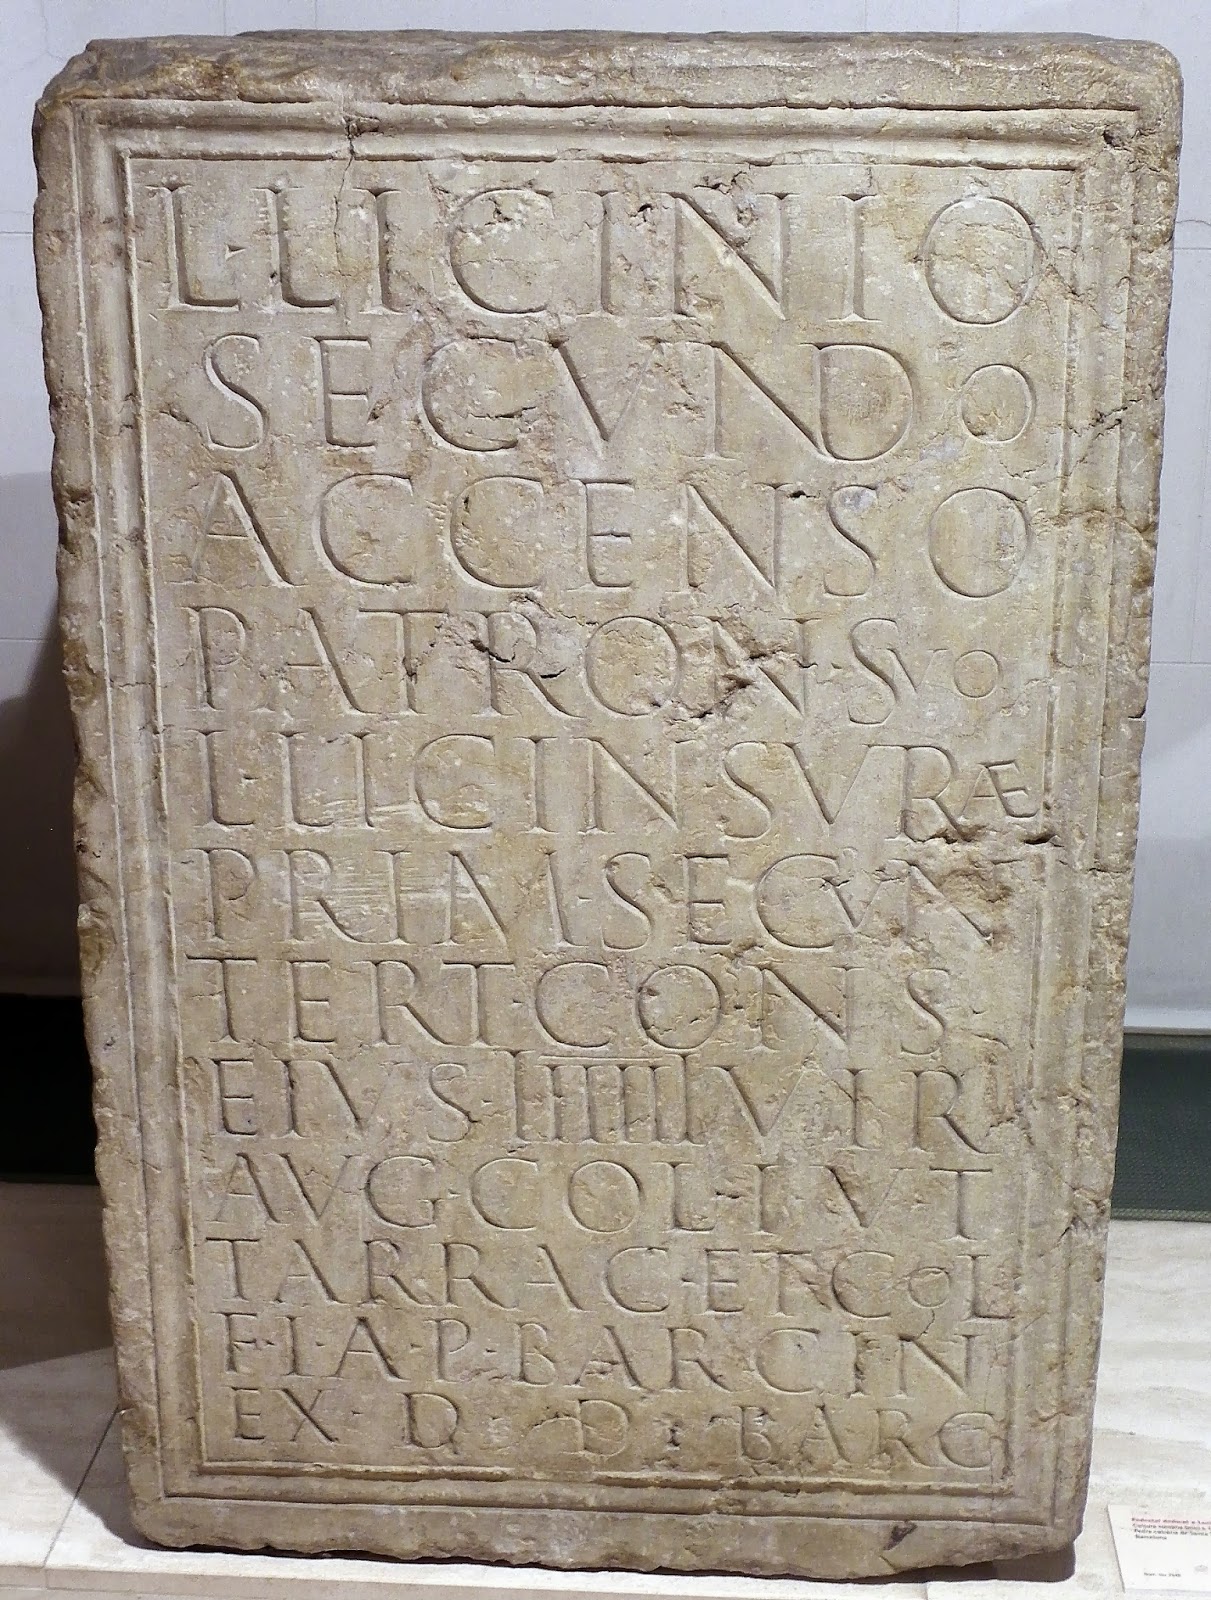 L·LICINIO
SECVNDO
ACCENSO
PATRON·SVO
L·LICIN SVRAE
PRIM·SECVN
TERT·CONS
EIVS·IIIIIIVIR
AVG·COL·I·V·T
TARRAC·ET·COL
F·I·A·P·BARCIN
EX·D·D·BARC
Barcelona